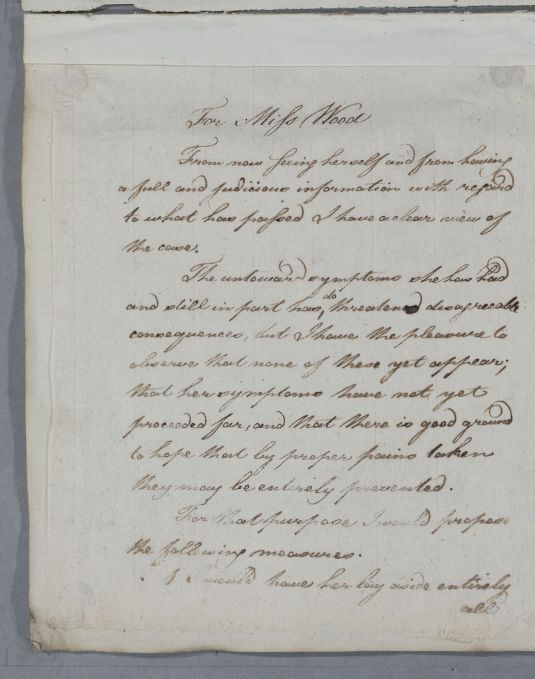 For Miss Wood
From now seeing herself and from having
a full and judicious information with regard
to what has passed I have a clear view of
the case.
The untoward symptoms she has had
and still in part has, do threaten disagreeable
consequences, but I have the pleasure to
observe that none of these yet appear;
that her symptoms have not yet
proceeded far, and that there is good ground
to hope that by proper pains taken
they may be entirely prevented.
For that purpose I would propose
the following measures.
1 I would have her lay aside entirely
all